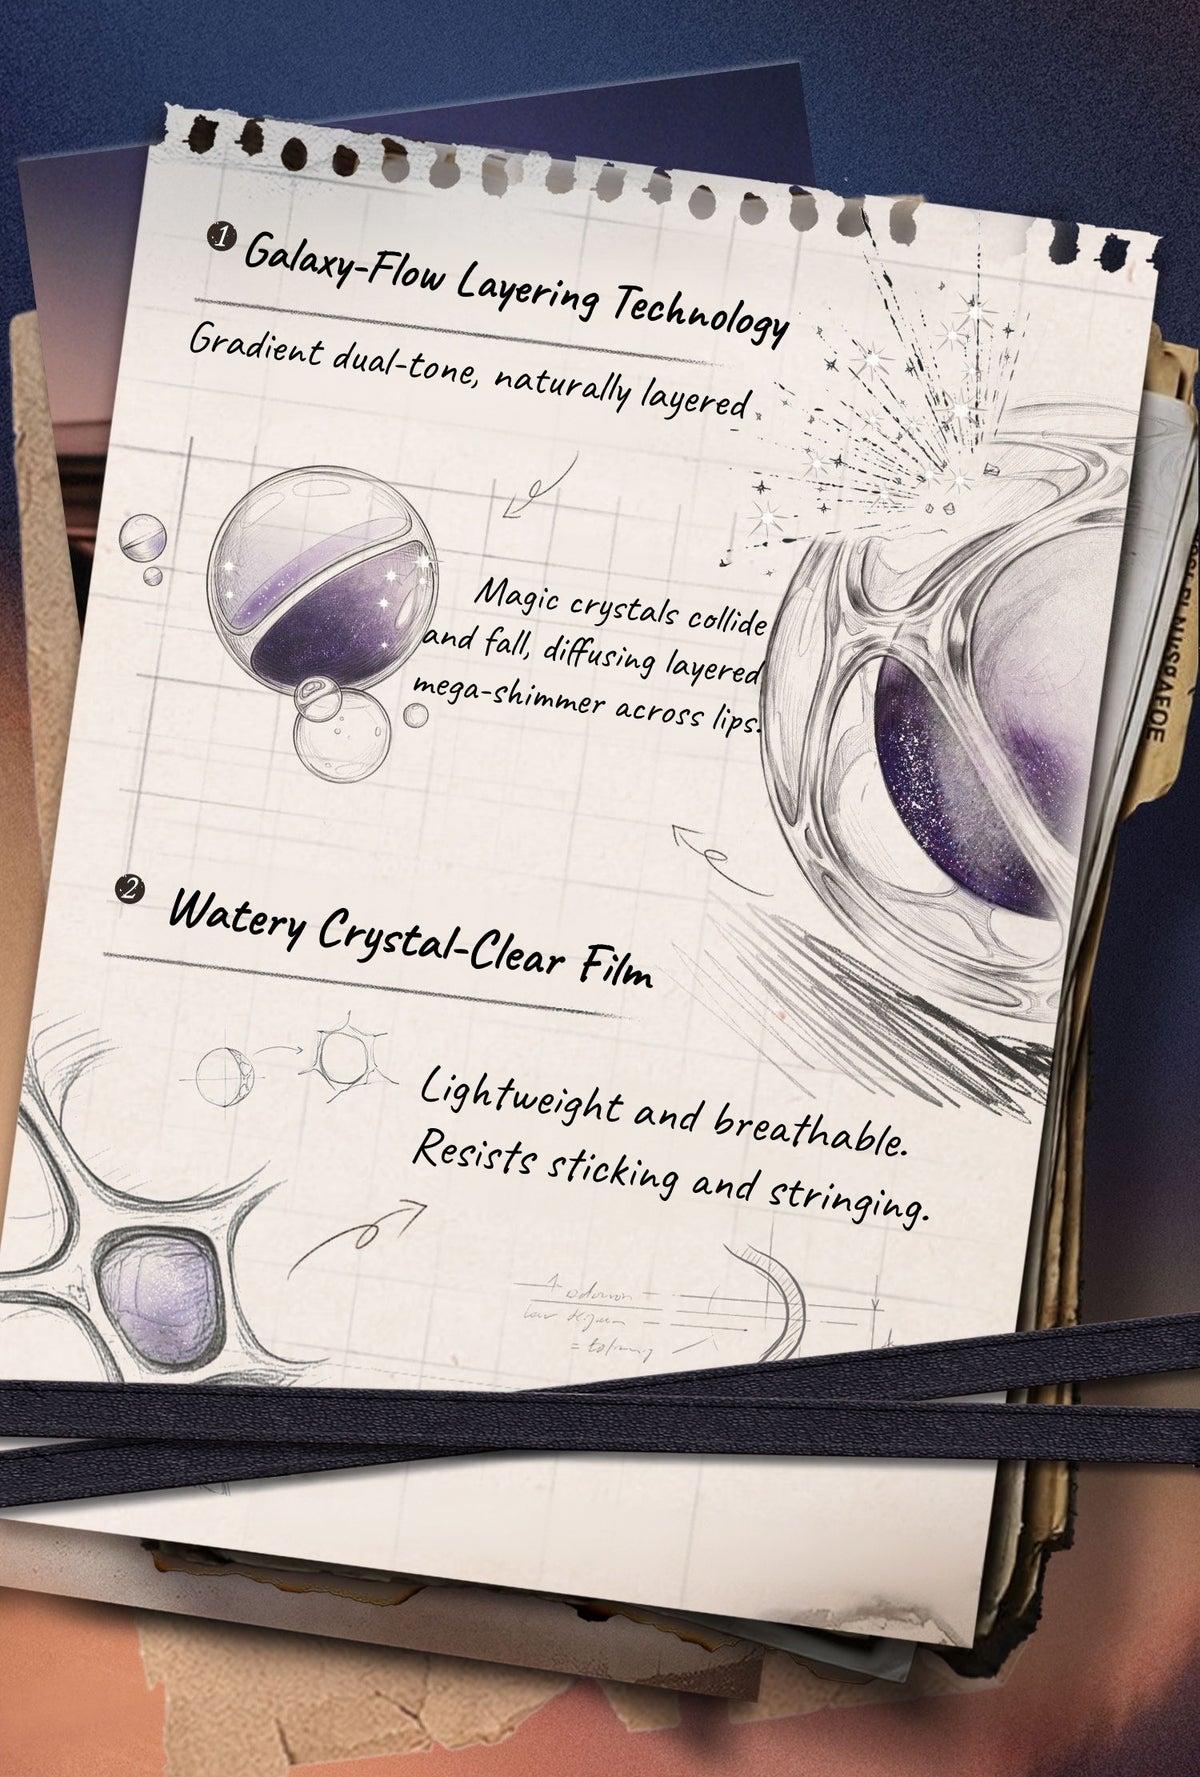 1 Galaxy-Flow Layering Technology
Gradient dual-tone, naturally layered
Magic crystals collide
and fall, diffusing layered
mega-shimmer across lips.
2 Watery Crystal-Clear Film
Lightweight and breathable.
Resists sticking and stringing.